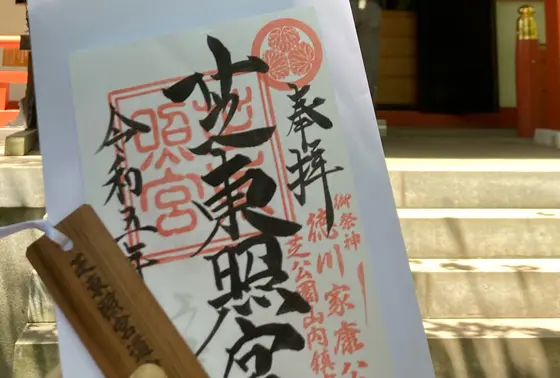 奉拝
御祭神
徳川家康公
芝公園山内鎮
芝東照宮
令和五年
芝東照宮